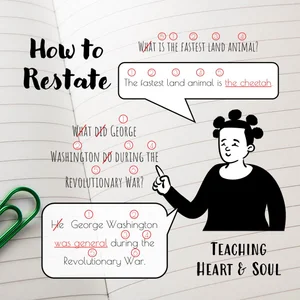 How to
Restate
What is the fastest land animal?
The fastest land animal is the cheetah.
What did George
Washington do during the
Revolutionary War?
He George Washington
was general during the
Revolutionary War.
Teaching
Heart & Soul